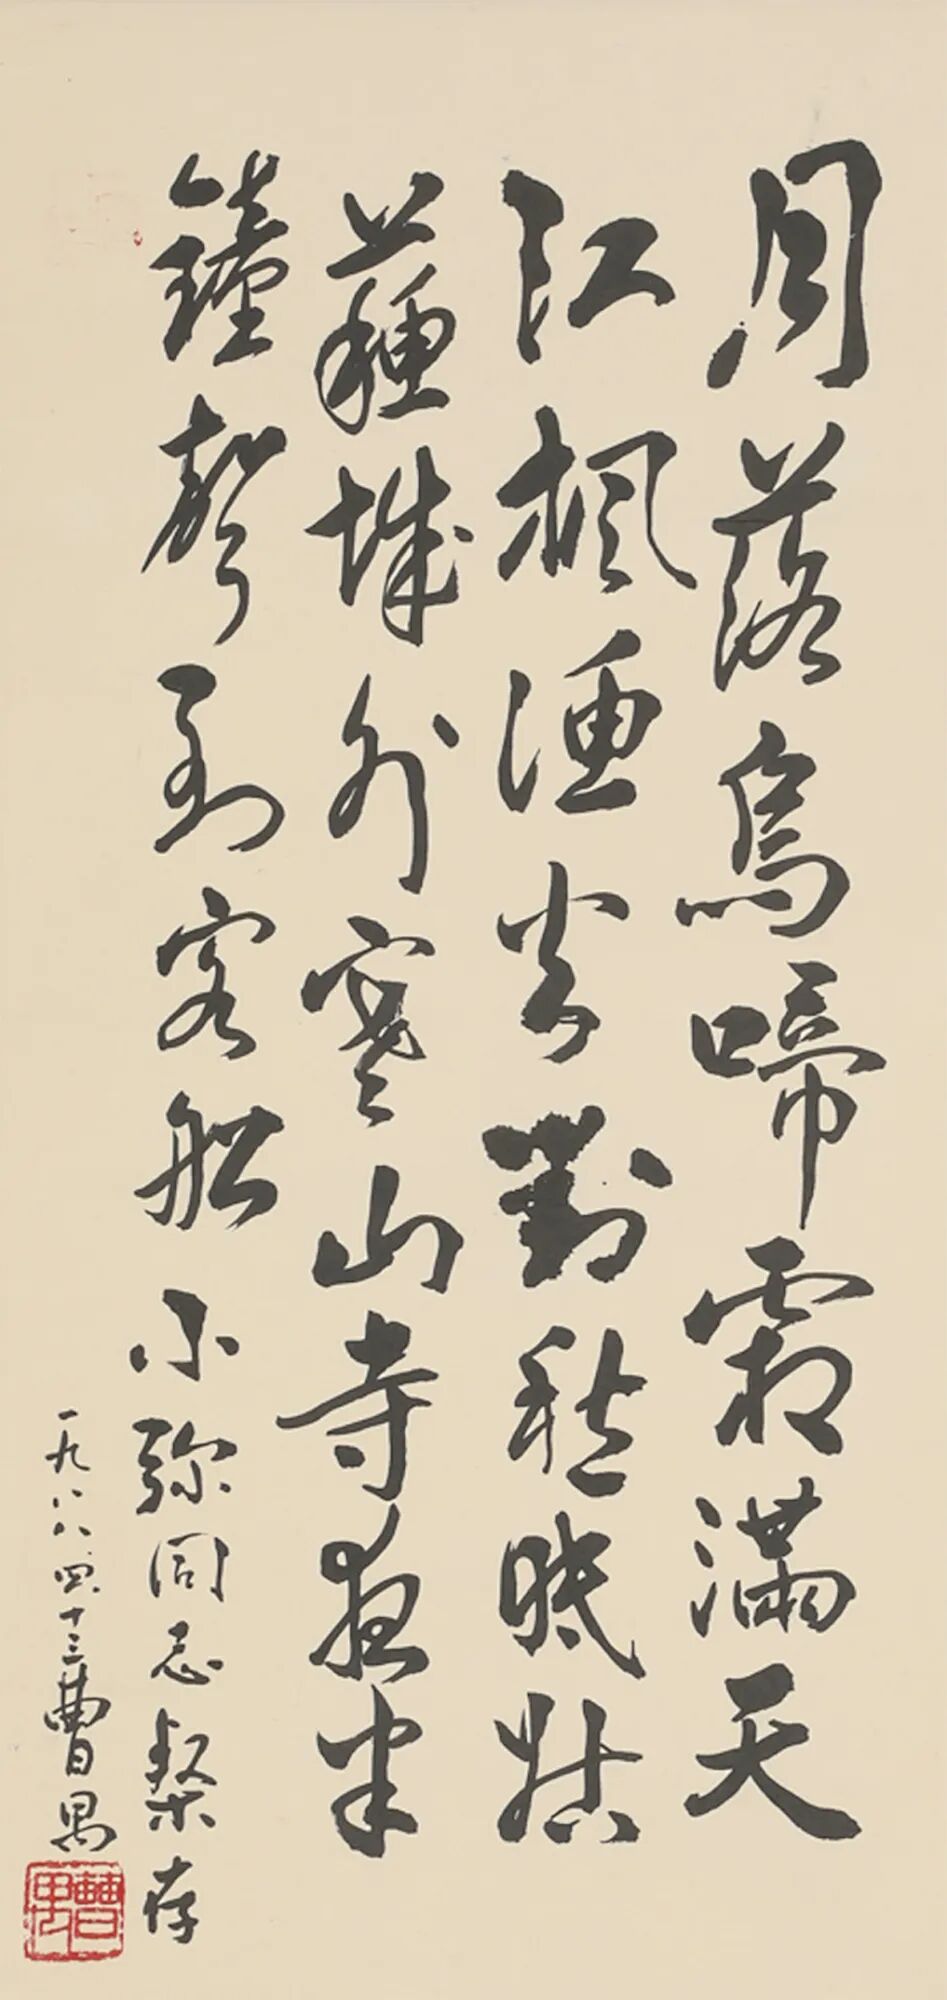 月落烏啼霜滿天
江楓渔火對愁眠姑
蘇城外寒山寺夜半
鐘聲到客船 小弥同志粲存
一九八八.四.十三 曹禺
曹禺